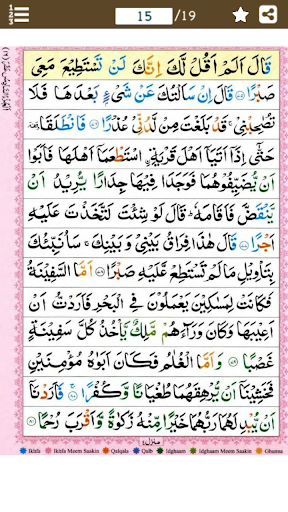 15 /19
قَالَ اَلَمْ اَقُلْ لَّكَ اِنَّكَ لَنْ تَسْتَطِيْعَ مَعِىَ
صَبْرًا ۝۷۵ قَالَ اِنْ سَاَلْتُكَ عَنْ شَىْءٍۭ بَعْدَهَا فَلَا
تُصٰحِبْنِىْ ۚ قَدْ بَلَغْتَ مِنْ لَّدُنِّىْ عُذْرًا ۝۷۶ فَانْطَلَقَا
حَتّٰٓى اِذَآ اَتَيَآ اَهْلَ قَرْيَةِ ۨاسْتَطْعَمَآ اَهْلَهَا فَاَبَوْا
اَنْ يُّضَيِّفُوْهُمَا فَوَجَدَا فِيْهَا جِدَارًا يُّرِيْدُ اَنْ
يَّنْقَضَّ فَاَقَامَهٗ ؕ قَالَ لَوْ شِئْتَ لَتَّخَذْتَ عَلَيْهِ
اَجْرًا ۝۷۷ قَالَ هٰذَا فِرَاقُ بَيْنِىْ وَبَيْنِكَ ۚ سَاُنَبِّئُكَ
بِتَاْوِيْلِ مَا لَمْ تَسْتَطِعْ عَّلَيْهِ صَبْرًا ۝۷۸ اَمَّا السَّفِيْنَةُ
فَكَانَتْ لِمَسٰكِيْنَ يَعْمَلُوْنَ فِى الْبَحْرِ فَاَرَدْتُّ اَنْ
اَعِيْبَهَا وَكَانَ وَرَآءَهُمْ مَّلِكٌ يَّاْخُذُ كُلَّ سَفِيْنَةٍ
غَصْبًا ۝۷۹ وَاَمَّا الْغُلٰمُ فَكَانَ اَبَوٰهُ مُؤْمِنَيْنِ
فَخَشِيْنَآ اَنْ يُّرْهِقَهُمَا طُغْيَانًا وَّكُفْرًا ۝۸۰ فَاَرَدْنَآ
اَنْ يُّبْدِلَهُمَا رَبُّهُمَا خَيْرًا مِّنْهُ زَكٰوةً وَّاَقْرَبَ رُحْمًا ۝۸۱
Ikhfa Ikhfa Meem Saakin Qalqala Qalb Idghaam Idghaam Meem Saakin Ghunna